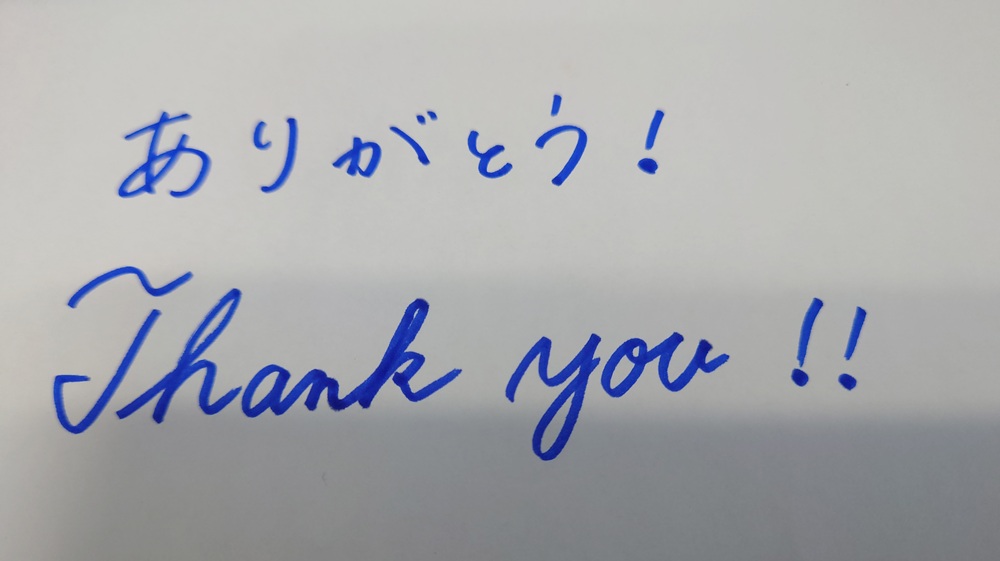 ありがとう!
Thank you !!